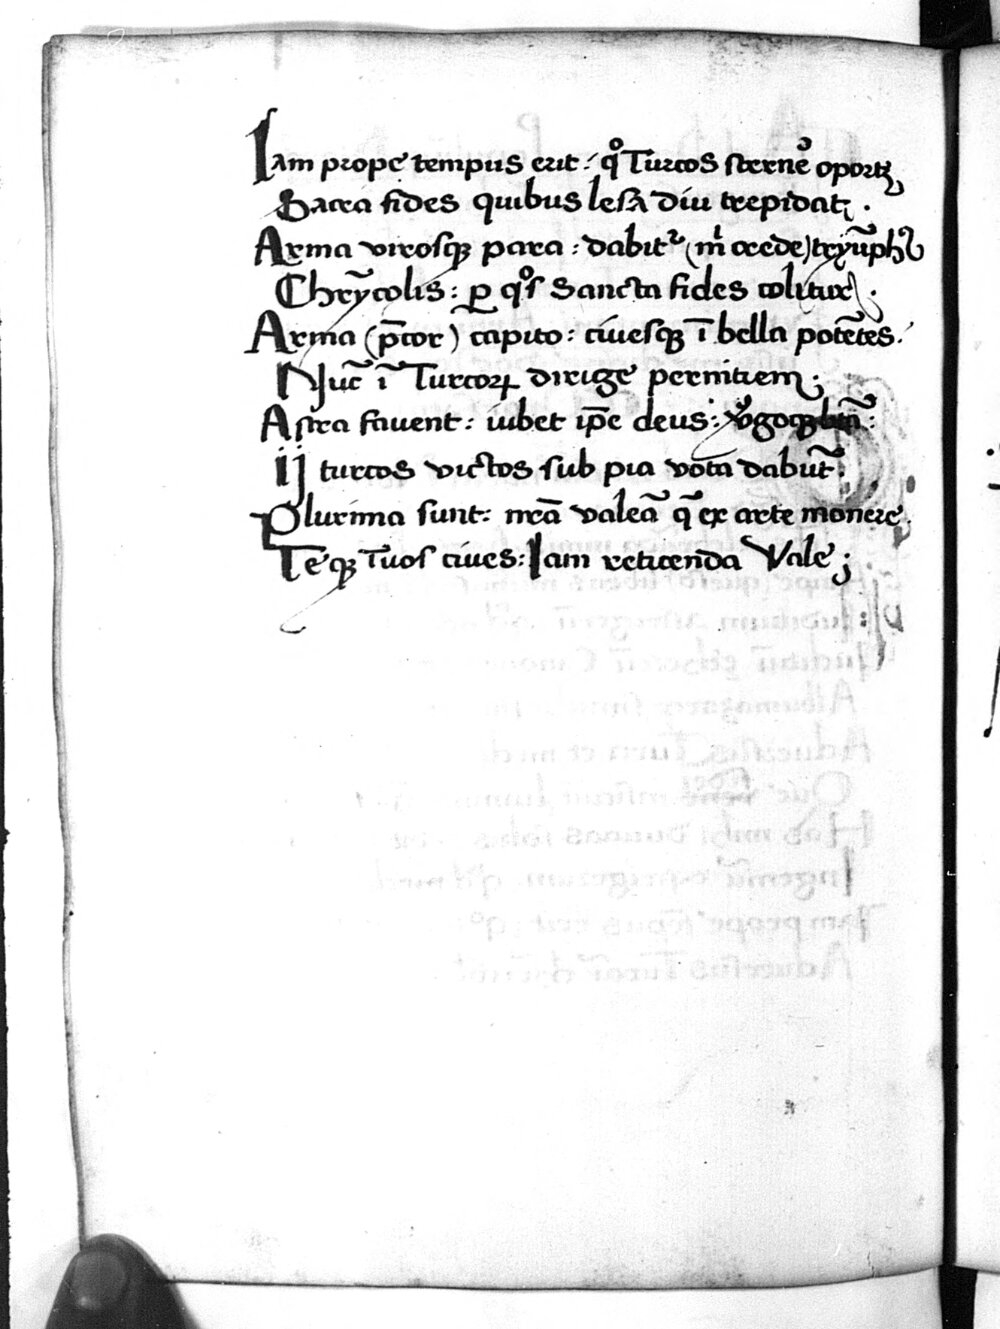 Iam prope tempus erit: qͦ Turcos sternē oportꝫ
Sacra fides quibus lesa diu trepidatꝫ.
Arma virosqꝫ para: dabitᷣ (mͥ crede) tryūphꝰ
Chrỹcolis: ꝑ qͦs sancta fides colitur.
Arma (p̄cor) capito: ciuesqꝫ ī bella potētes.
Nūc ī Turcoꝝ dirige perniciem;
Astra fauent: iubet ip̄e deus:
ij turcos victos sub pia vota dabūt:
Plurima sunt: mēā valeā q̄ ex arte monere.
Teqꝫ tuos ciues: Iam reticenda Vale;